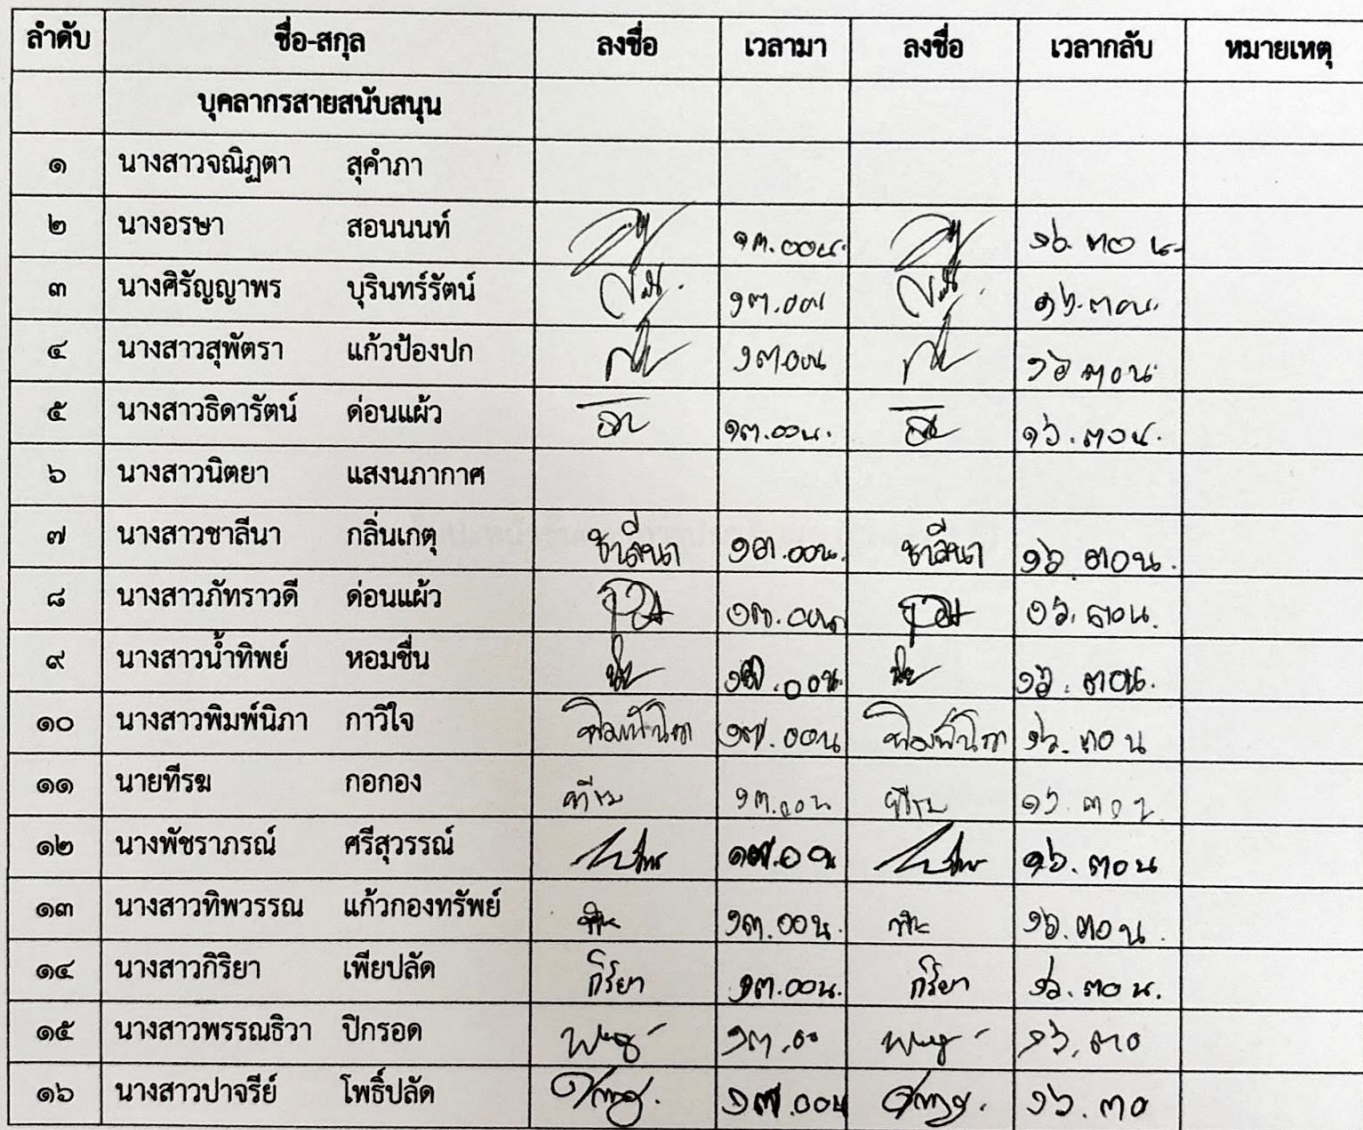 ลำดับ ชื่อ-สกุล ลงชื่อ เวลามา ลงชื่อ เวลากลับ หมายเหตุ
บุคลากรสายสนับสนุน
๑ นางสาวจณิฏตา สุคำภา
๒ นางอรษา สอนนนท์ ๑๓.๐๐น. ๑๖.๓๐ น.
๓ นางศิรัญญาพร บุรินทร์รัตน์ ๑๓.๐๐น ๑๖.๓๐น.
๔ นางสาวสุพัตรา แก้วป้องปก ๑๓.๐๐น ๑๖.๓๐น.
๕ นางสาวธิดารัตน์ ด่อนแผ้ว ๑๓.๐๐น. ๑๖.๓๐น.
๖ นางสาวนิตยา แสงนภากาศ
๗ นางสาวชาลีนา กลิ่นเกตุ ชาลีนา ๑๓.๐๐น. ชาลีนา ๑๖.๓๐น.
๘ นางสาวภัทราวดี ด่อนแผ้ว ๑๓.๐๐น ๑๖.๓๐น.
๙ นางสาวน้ำทิพย์ หอมชื่น ๑๓.๐๐น. ๑๖.๓๐น.
๑๐ นางสาวพิมพ์นิภา กาวีใจ พิมพ์นิภา ๑๓.๐๐น พิมพ์นิภา ๑๖.๓๐ น
๑๑ นายทีรฆ กอกอง ทีรฆ ๑๓.๐๐น ทีรฆ ๑๖.๓๐น
๑๒ นางพัชราภรณ์ ศรีสุวรรณ์ ๑๓.๐๐น ๑๖.๓๐น
๑๓ นางสาวทิพวรรณ แก้วกองทรัพย์ ๑๓.๐๐น. ๑๖.๓๐น.
๑๔ นางสาวกิริยา เพียปลัด กิริยา ๑๓.๐๐น. กิริยา ๑๖.๓๐ น.
๑๕ นางสาวพรรณธิวา ปิกรอด ๑๓.๐๐ ๑๖.๓๐
๑๖ นางสาวปาจรีย์ โพธิ์ปลัด ๑๓.๐๐น ๑๖.๓๐